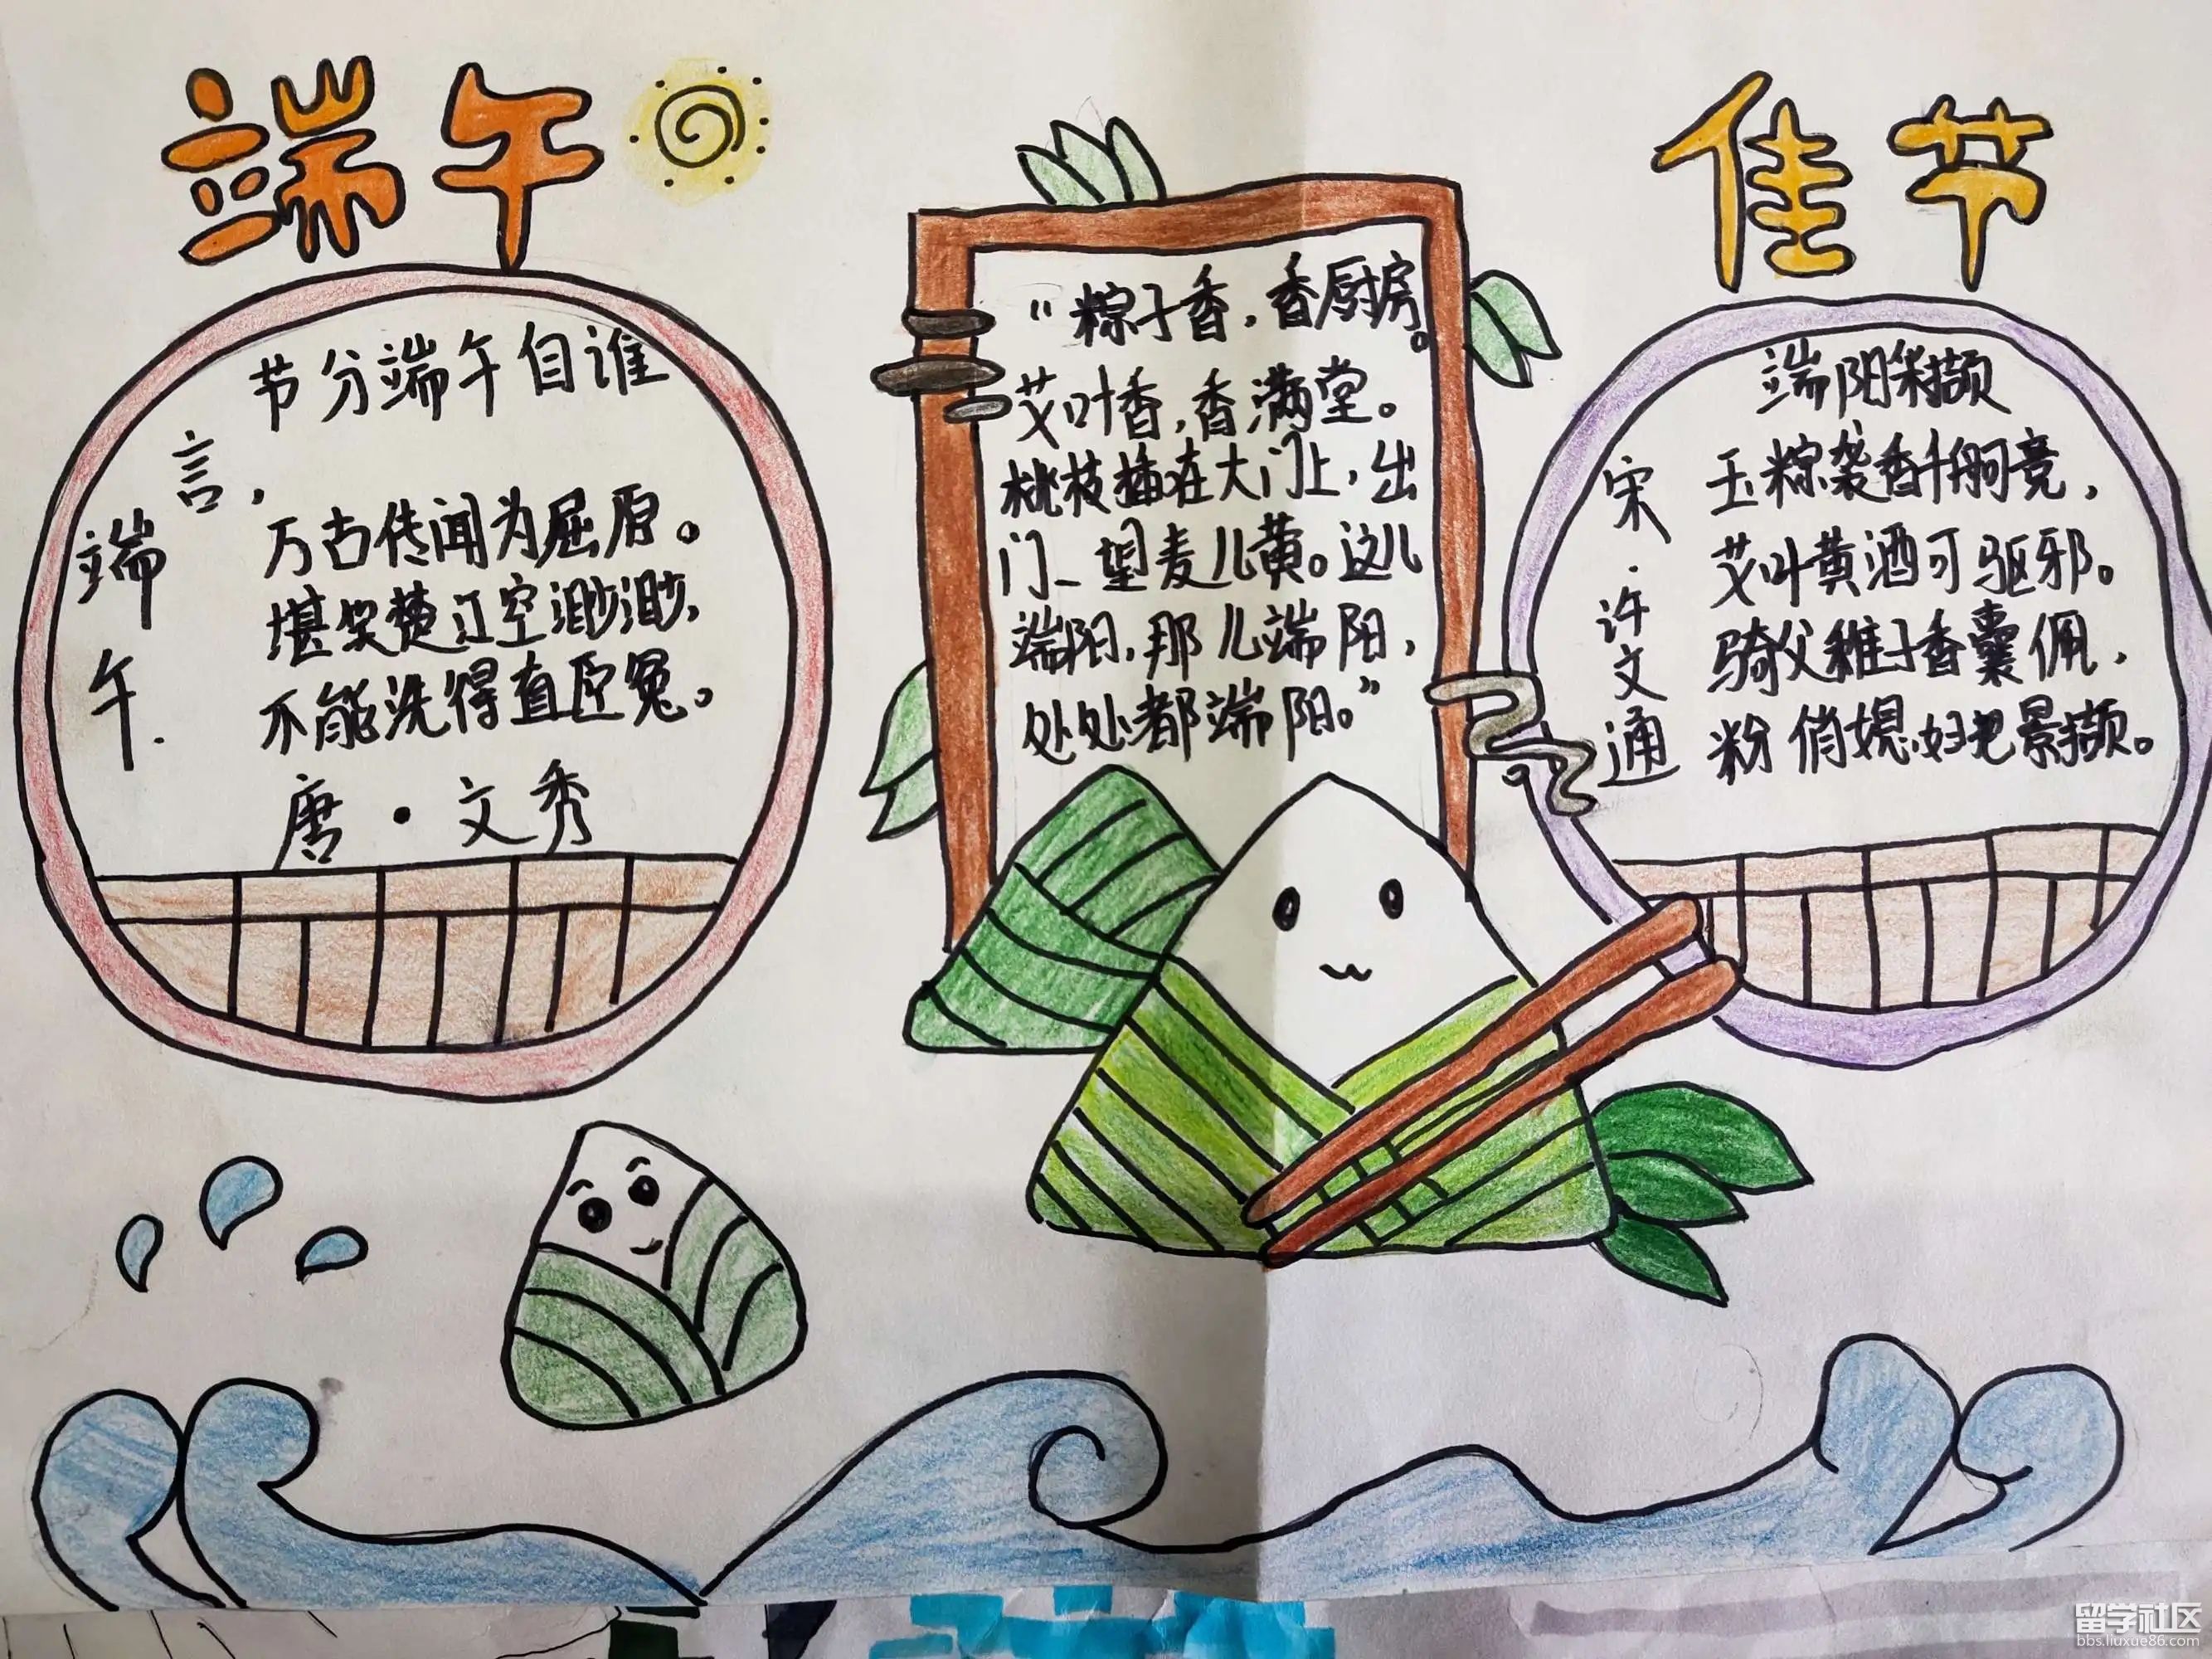 端午
佳节
端午
节分端午自谁
言，
万古传闻为屈原。
堪笑楚江空渺渺，
不能洗得直臣冤。
唐·文秀
“粽子香，香厨房。
艾叶香，香满堂。
桃枝插在大门上，出
门一望麦儿黄。这儿
端阳，那儿端阳，
处处都端阳。”
端阳采撷
宋·许文通
玉粽袭香千舸竞，
艾叶黄酒可驱邪。
骑父稚子香囊佩，
粉俏媳妇把景撷。
留学社区
bbs.liuxue86.com